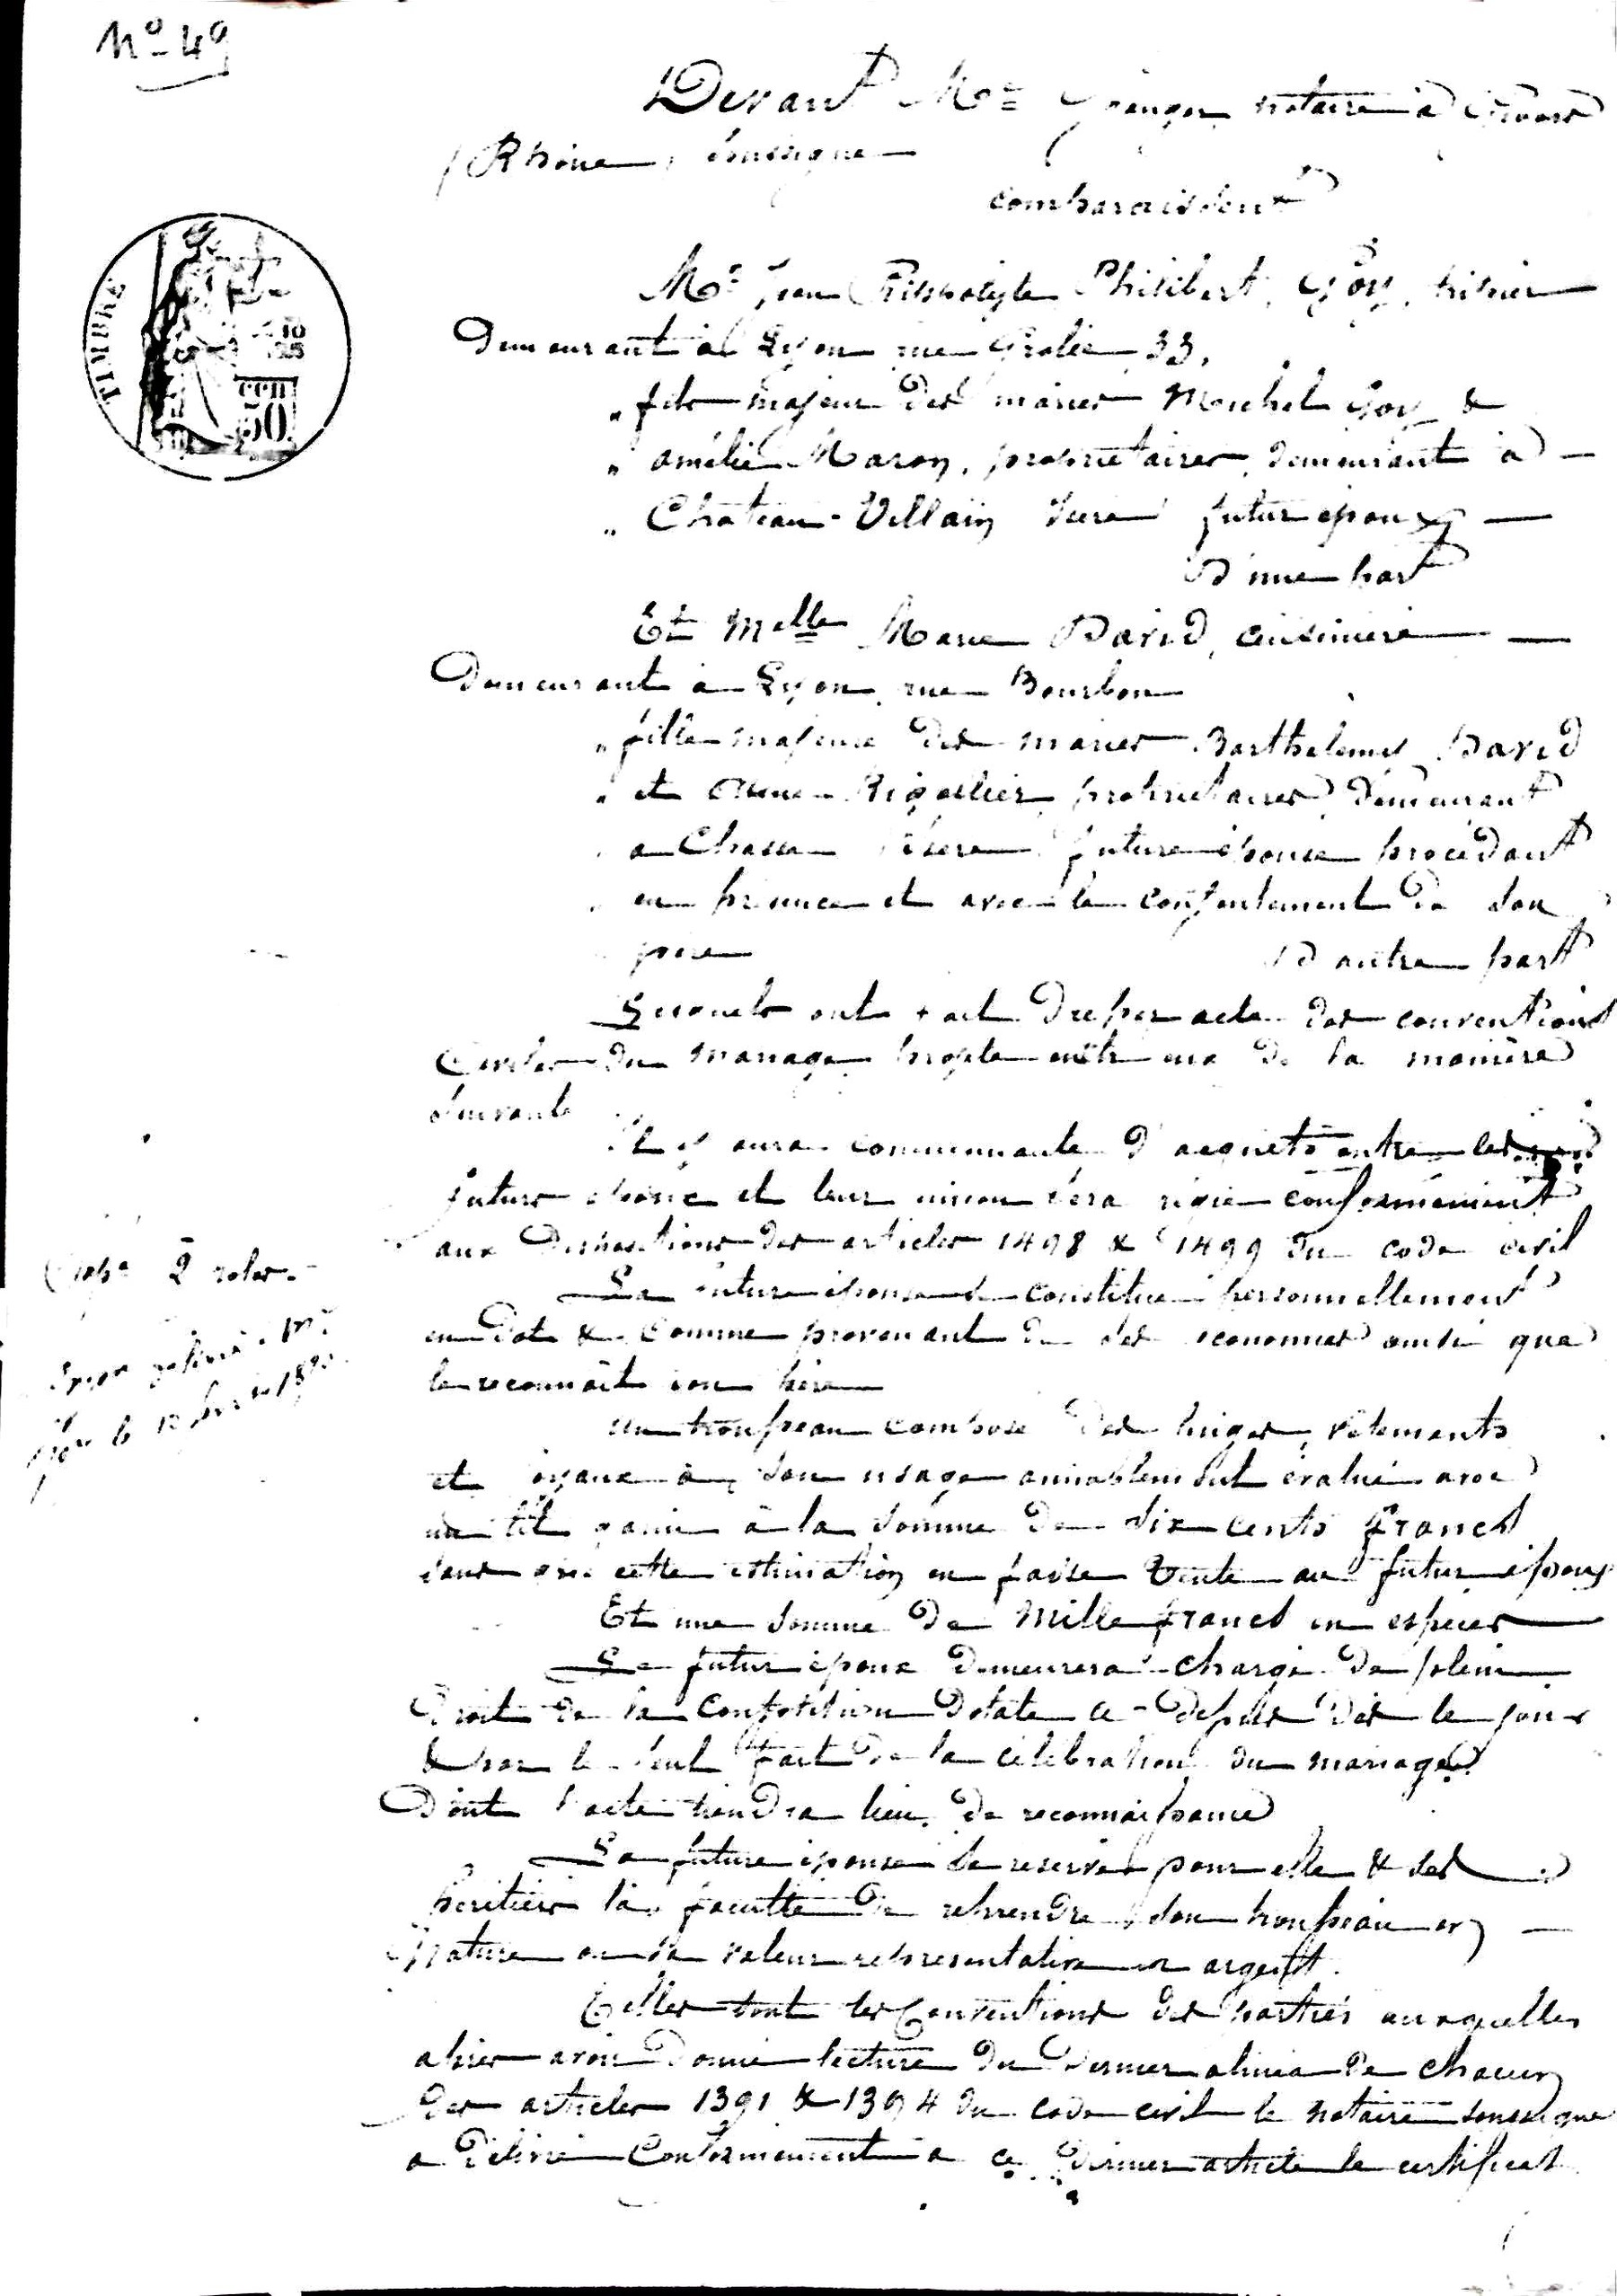 No 49
Devant Me Granger notaire à Givors
(Rhône) soussigné
comparaissent
Mr Jean Hippolyte Philibert Goy,
demeurant à Lyon rue Grolée 33,
" fils majeur des mariés Michel Goy &
" Amélie Maron, propriétaires, demeurant à
" Château-Villain Isère futur époux
d'une part
Et Melle Marie David, cuisinière
demeurant à Lyon rue Bourbon
" fille majeure des mariés Barthélemy David
" et propriétaires demeurant
" à Chasse Isère future épouse procédant
" en présence et avec le consentement de son
père d'autre part
Lesquels ont fait dresser acte des conventions
civiles du mariage projeté entre eux de la manière
suivante
Il y aura communauté d'acquets entre les
futurs époux et leur union sera régie conformément
aux dispositions des articles 1498 & 1499 du code civil
La future épouse se constitue personnellement
en dot & comme provenant de ses économies ainsi que
le reconnait son père
un trousseau composé des linges, vêtements
et joyaux à son usage amiablement évalué avec
un lit garni à la somme de six cents francs
sans que cette estimation en fasse vente au futur époux
Et une somme de mille francs en espèces
Le futur époux demeurera chargé de plein
droit de la constitution dotale ci-dessus dès le jour
& par le seul fait de la célébration du mariage
dont l'acte tiendra lieu de reconnaissance
La future épouse se réserve pour elle & ses
héritiers la faculté de reprendre son trousseau en
nature ou sa valeur représentative en argent.
Telles sont les conventions des parties auxquelles
après avoir donné lecture du dernier alinéa de chacun
des articles 1391 & 1394 du code civil le notaire soussigné
a délivré conformément à ce dernier article le certificat
TIMBRE
50
2 roles
le 12